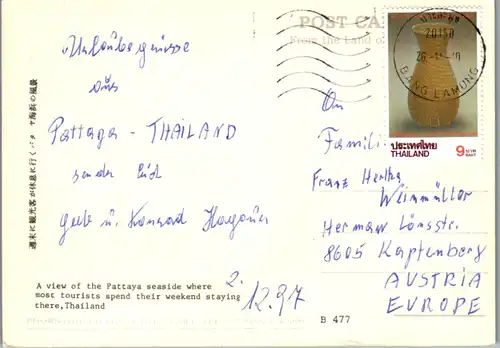 POST CA
From the Land of
20150
BANG LAMUNG
ประเทศไทย 9 บาท
THAILAND BAHT
Urlaubsgrüsse
aus
Pattaya - THAILAND
sendet Euch
u. Konrad
2.
12.97
An
Famili
Franz Hertha
Weinmüller
Hermann Lönsstr.
8605 Kapfenberg
AUSTRIA
EUROPE
A view of the Pattaya seaside where
most tourists spend their weekend staying
there,Thailand
B 477
週末に観光客が休息に行くパタヤ海剤の風景